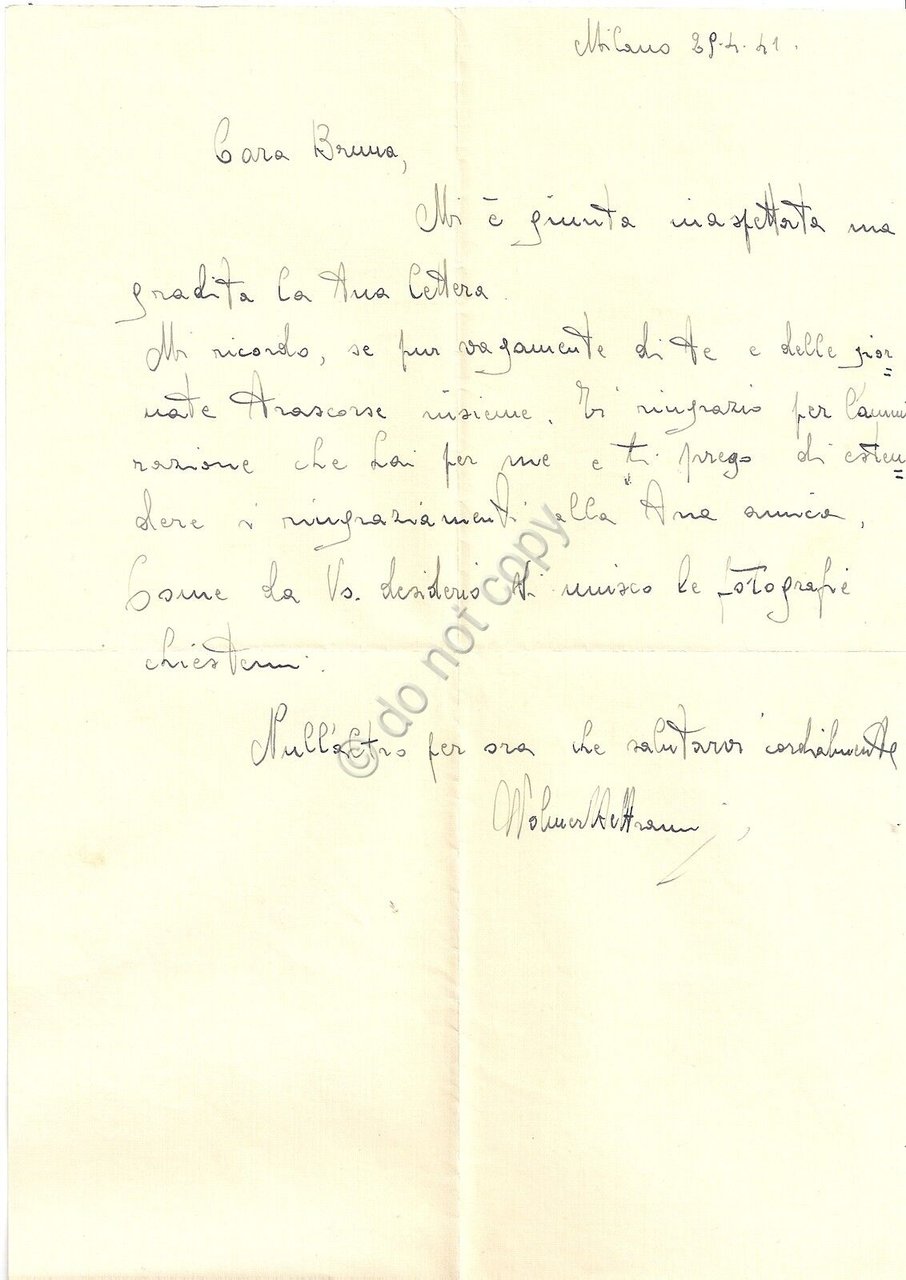 Milano 29.4.41.
Cara Bruna,
Mi è giunta inaspettata ma
gradita la tua lettera.
Mi ricordo, se pur vagamente di te e delle gior=
nate trascorse insieme. Ti ringrazio per l'ammi
razione che hai per me e ti prego di esten=
dere i ringraziamenti alla tua amica.
Come da Vs. desiderio ti unisco le fotografie
chiestemi.
Null'altro per ora che salutarvi cordialmente
Wolmer Beltrami
© do not copy